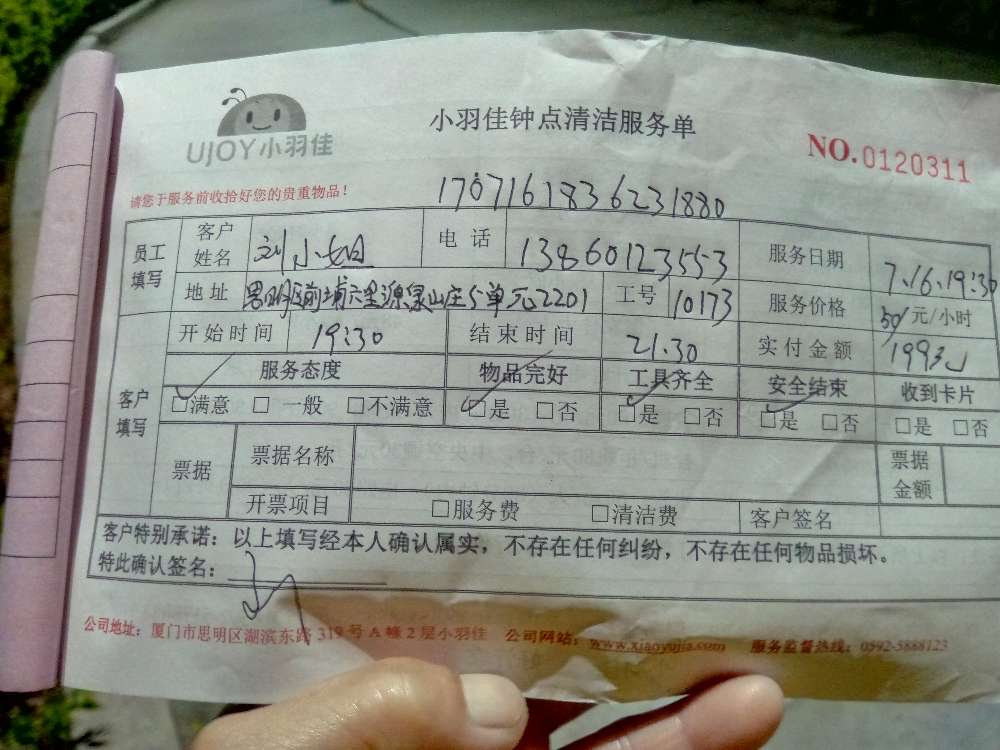 UJOY小羽佳
小羽佳钟点清洁服务单
NO.0120311
请您于服务前收拾好您的贵重物品！
1707161836231880
员工填写 客户姓名 刘小姐 电话 13860123553 服务日期 7.16.19:30
地址 思明区前埔六里源泉山庄5单元2201 工号 10173 服务价格 50/元/小时
开始时间 19:30 结束时间 21.30 实付金额
客户填写 服务态度 物品完好 工具齐全 安全结束 收到卡片
□满意 □一般 □不满意 □是 □否 □是 □否 □是 □否 □是 □否
票据 票据名称 票据金额
开票项目 □服务费 □清洁费 客户签名
客户特别承诺：以上填写经本人确认属实，不存在任何纠纷，不存在任何物品损坏。
特此确认签名：
公司地址：厦门市思明区湖滨东路319号A幢2层小羽佳 公司网站：www.xiaoyujia.com 服务监督热线：0592-5888123